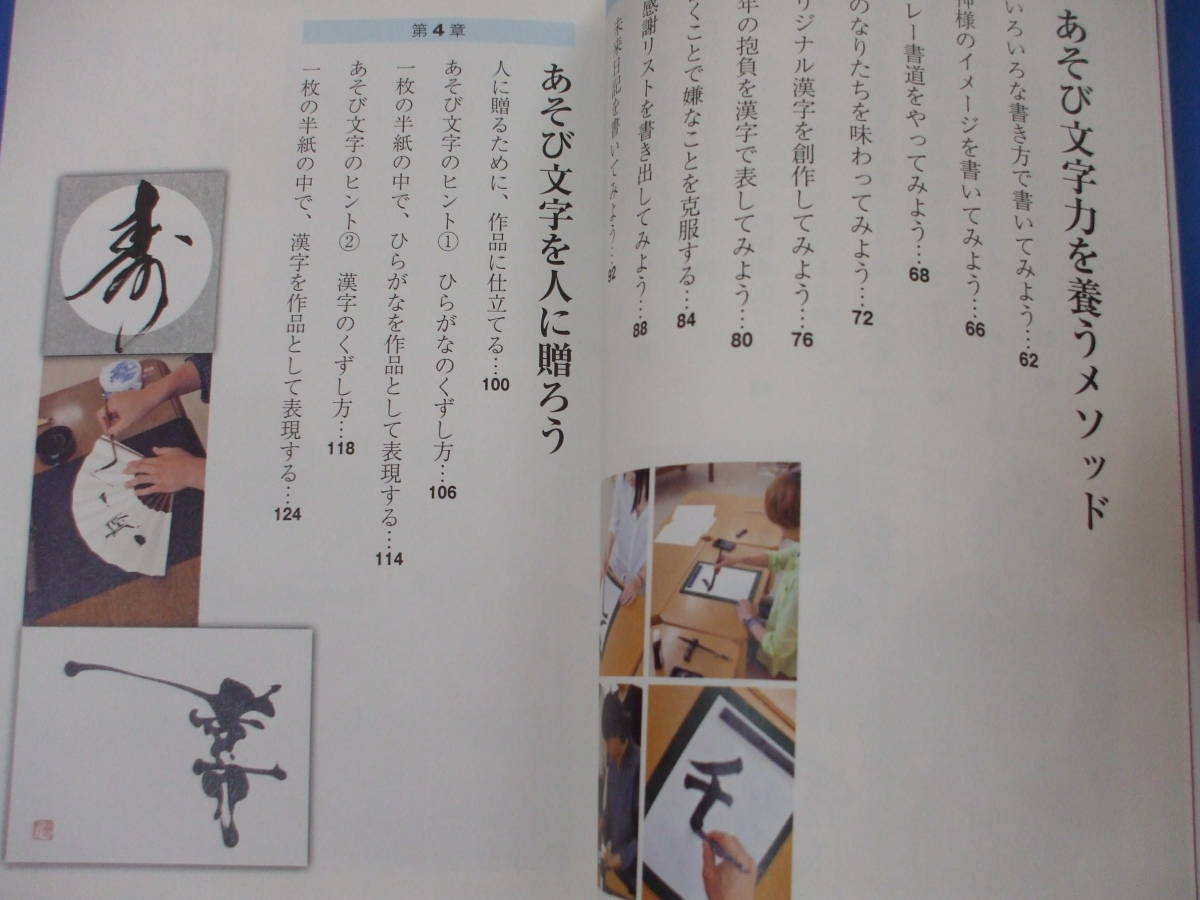 あそび文字力を養うメソッド
いろいろな書き方で書いてみよう…62
神様のイメージを書いてみよう…66
レー書道をやってみよう…68
のなりたちを味わってみよう…72
リジナル漢字を創作してみよう…76
年の抱負を漢字で表してみよう…80
くことで嫌なことを克服する…84
感謝リストを書き出してみよう…88
未来日記を書いてみよう…92
第4章
あそび文字を人に贈ろう
人に贈るために、作品に仕立てる…100
あそび文字のヒント① ひらがなのくずし方…106
一枚の半紙の中で、ひらがなを作品として表現する…114
あそび文字のヒント② 漢字のくずし方…118
一枚の半紙の中で、漢字を作品として表現する…124
寿